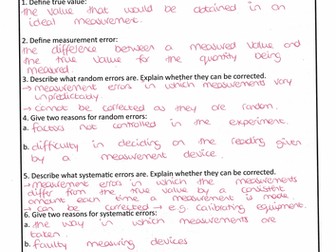 1. Define true value:
the value that would be obtained in an
ideal measurement.
2. Define measurement error:
the difference between a measured value and
the true value for the quantity being
measured.
3. Describe what random errors are. Explain whether they can be corrected.
→ measurement errors in which measurements vary
unpredictably.
→ cannot be corrected as they are random.
4. Give two reasons for random errors:
a. factors not controlled in the experiment.
b. difficulty in deciding on the reading given
by a measurement device.
5. Describe what systematic errors are. Explain whether they can be corrected.
→ measurement errors in which the measurements
differ from the true value by a consistent
amount each time a measurement is made
→ can be corrected → e.g. calibrating equipment.
6. Give two reasons for systematic errors:
a. the way in which measurements are
taken.
b. faulty measuring devices